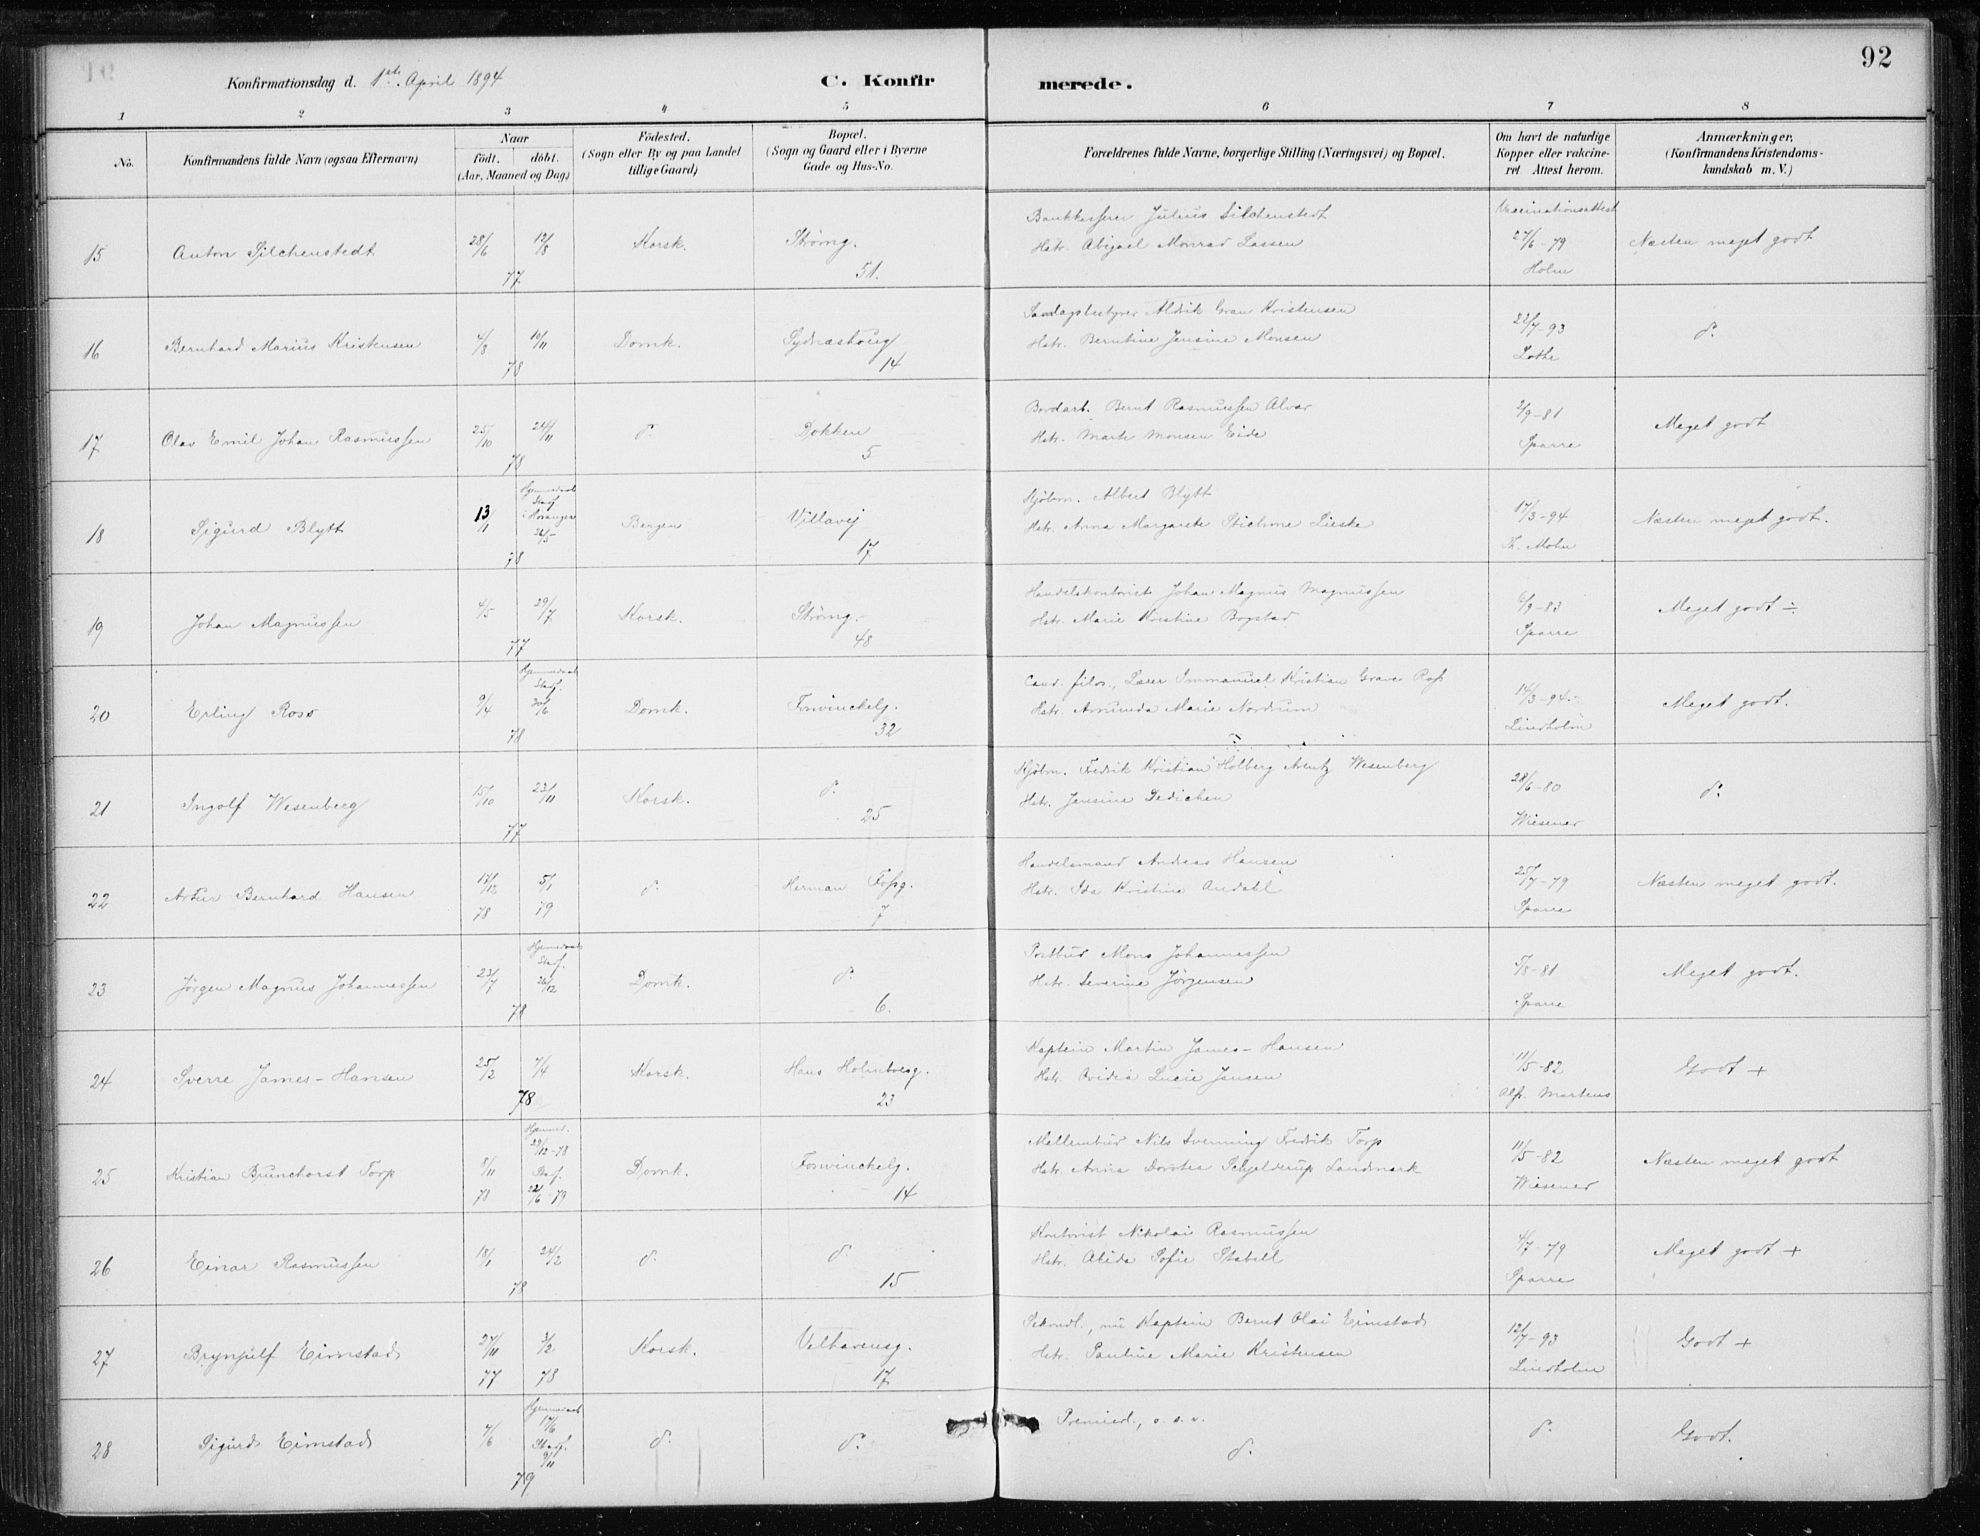 92
Konfirmationsdag d. 1ste April 1894
C. Konfir merede.
1 2 3 4 5 6 7 8
No.
Konfirmandens fulde Navn (ogsaa Efternavn)
Naar
födt. döbt.
(Aar, Maaned og Dag.)
Födested.
(Sogn eller By og paa Landet
tillige Gaard)
Bopæl.
(Sogn og Gaard eller i Byerne
Gade og Hus-No.
Forældrenes fulde Navne, borgerlige Stilling (Næringsvei) og Bopæl.
Om havt de naturlige
Kopper eller vakcine-
ret. Attest herom.
Anmærkninger.
(Konfirmandens Kristendoms-
kundskab m. V.)
15 Anton Silchenstedt 28/6 12/8 77 Korsk. Strömg. 51.
Bankkasserer Julius Silchenstedt
Hstr. Abigael Monrad Lassen
Vaccinationsattest 27/6-79 Holm
Næsten meget godt
16 Bernhard Marius Kristensen 4/8 10/11 78 Domk. Sydnæshoug 14
Hstr. Berntine Jensine Monsen
22/7-93 Lothe
d.
17 Olav Emil Johan Rasmussen 25/10 24/11 78 d. Dokken 5
Bordarb. Bernt Rasmussen Alvær
Hstr. Marte Monsen Eide
2/9-81 Sparre
Meget godt
18 Sigurd Blytt 13/1 Hjemmedøbt Stadf. 26/5 78 Bergen Villavej 17
Kjöbm. Albert Blytt
Hstr. Anna Margarete Lieske
17/3-94 Th. Mohn
Næsten meget godt.
19 Johan Magnussen 4/5 29/7 77 Korsk. Strömg. 48
Handelskontorist Johan Magnus Magnussen
Hstr. Marie Kristine Bogstad
6/9-83 Sparre
Meget godt ÷
20 Erling Ross 9/4 Hjemmedøbt Stadf. 30/6 78 Domk. Fosvinckelg. 32
Cand. filos., Lærer Immanuel Kristian Grave Ross
Hstr. Amunda Marie Nordrum
14/3-94. Lindholm
Meget godt.
21 Ingolf Wesenberg 15/10 23/11 77 Korsk. d. 25
Kjöbm. Fredrik Kristian Holberg Arentz Wesenberg
Hstr. Jensine Dedichen
28/6-80 Wiesener
d.
22 Artur Bernhard Hansen 17/12 78 5/1 79 d. Herman Fossg. 7
Handelsmand Andreas Hansen
Hstr. Ida Kristine Andahl
25/7-79 Sparre
Næsten meget godt.
23 Jörgen Magnus Johannessen 23/7 Hjemmedøbt Stadf. 26/12 78 Domk. d. 6.
Postbud Mons Johannessen
Hstr. Severine Jörgensen
5/8-81 Sparre
Meget godt.
24 Sverre James-Hansen 25/2 7/4 78 Korsk. Hans Holmboesg. 23
Kaptein Martin James-Hansen
Hstr. Ovidia Lucie Jensen
11/5-82 Alfr. Martens
Godt +
25 Kristian Brunchorst Torp 8/11 78 Hjemmed. 29/12-78 Stadf. 22/6-79 Domk. Fosvinckelg. 14
Nils Svenning Fredrik Torp
Hstr. Anna Dorotea Schjelderup Landmark
11/5-82 Wiesener
Næsten meget godt
26 Einar Rasmussen 18/1 24/2 78 d. d. 15
Kontorist Nikolai Rasmussen
Hstr. Alida Sofie Stabell
4/7-79 Sparre
Meget godt +
27 Brynjulf Eimstad 27/11 77 3/2 78 Korsk. Velhavensg. 17
Sekondl., nu Kaptein Bernt Olai Eimstad
Hstr. Pauline Marie Kristensen
12/7-93 Lindholm
Godt +
28 Sigurd Eimstad 7/6 Hjemmedøbt 17/6 Stadf. 9/11 79 d. d.
Premierl., o. s. v.
d.
d.
Godt.